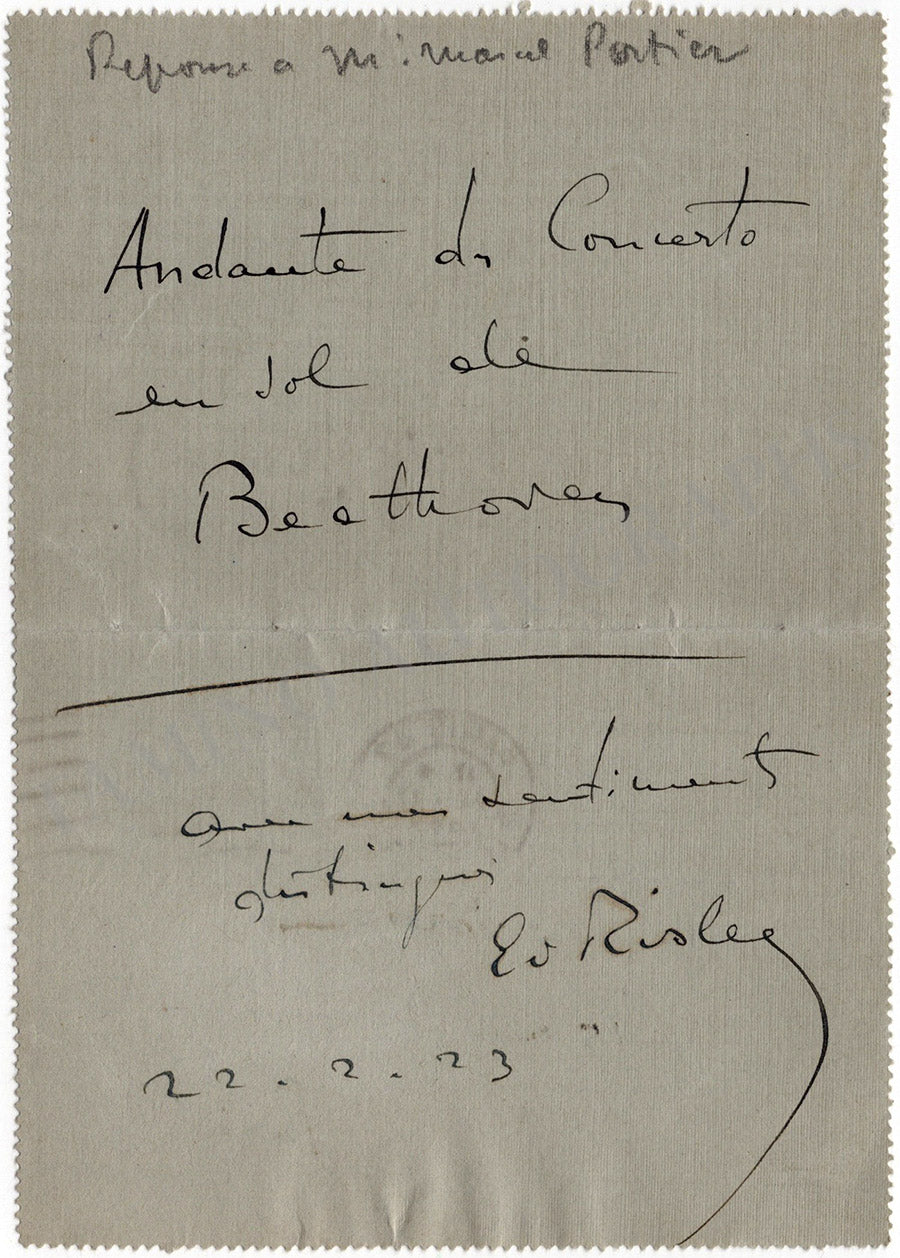 Reponse a Mr: Marcel Portier
Andante du Concerto
en sol de
Beethoven
avec mes sentiments
distingués
Ed Risler
22.2.23